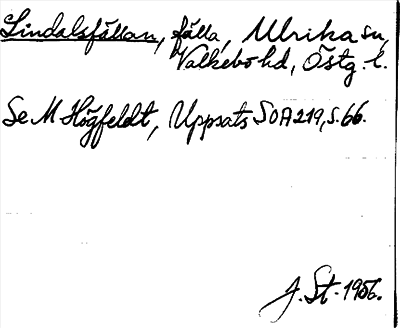 Lindalsfällan, fälla, Ulrika sn,
Valkebo hd, Östg. l.
Se M Högfeldt, Uppsats SOA 219, s. 66.
J. St. 1956.